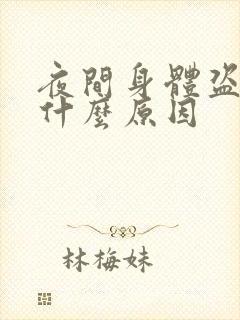 夜間身體盜
什麼原因
林梅妹